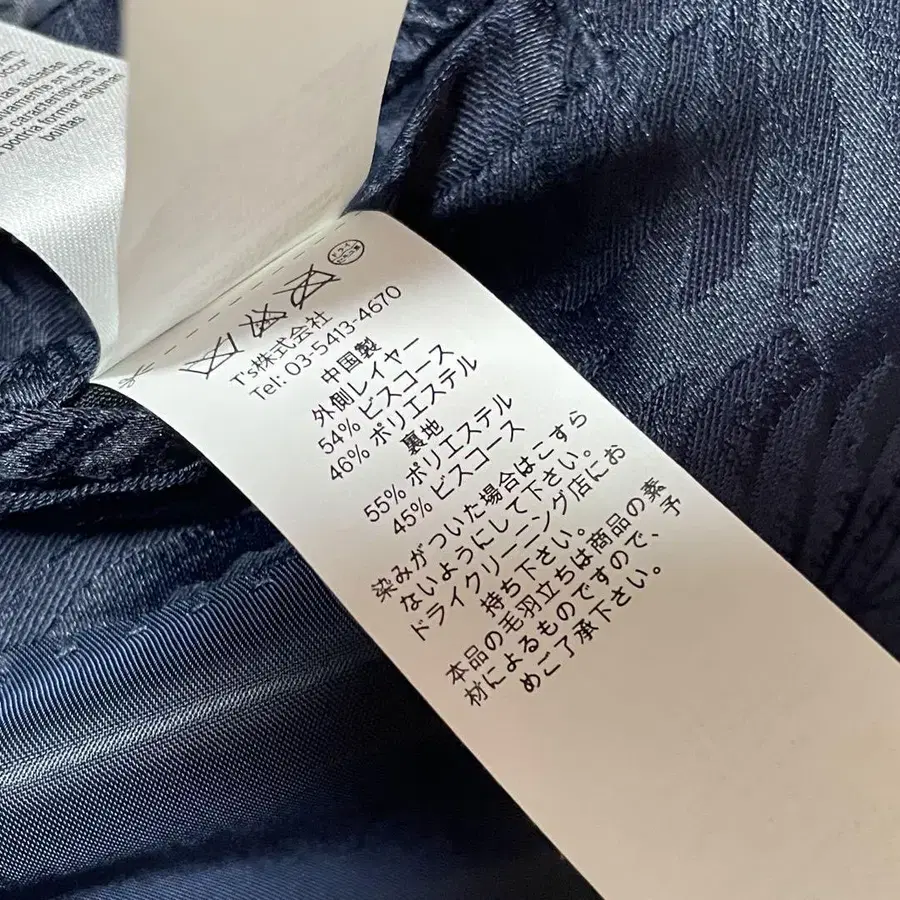 características de
podría formar aquellas
bolitas
T's株式会社
Tel: 03-5413-4670
中国製
外側レイヤー
54% ビスコース
46% ポリエステル
裏地
55% ポリエステル
45% ビスコース
染みがついた場合はこすら
ないようにして下さい。
ドライクリーニング店にお
持ち下さい。
本品の毛羽立ちは商品の素
材によるものですので、予
めご了承下さい。